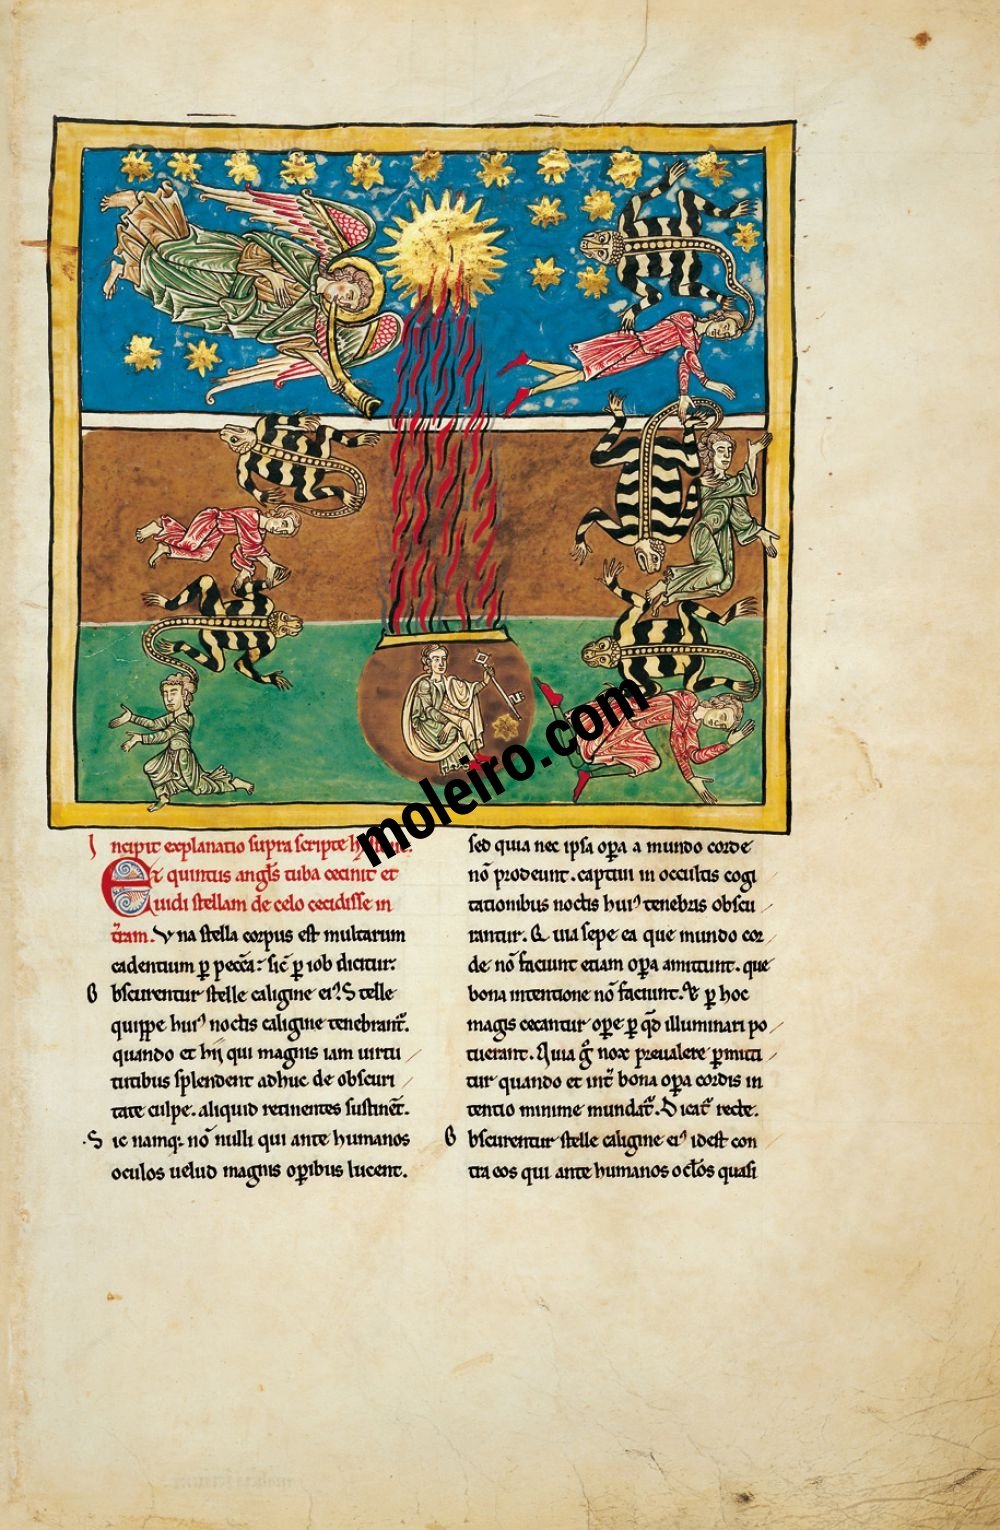 moleiro.com
Incipit explanatio supra scripte
Et quintus angl̄s tuba cecinit et
uidi stellam de celo cecidisse in
t̄ram. Vna stella corpus est multarum
cadentium ꝑ pecc̄a. sic̄ ꝑ iob dicitur.
Obscurentur stelle caligine ei᾽. Stelle
quippe hui᾽ noctis caligine tenebrant̄.
quando et hii qui magnis iam uirtu
tutibus splendent adhuc de obscuri
tate culpe. aliquid retinentes sustinēt.
Sic namq; nō nulli qui ante humanos
oculos uelud magnis oꝑibus lucent.
sed quia nec ipsa oꝑa a mundo corde
nō prodeunt. captiui in occultis cogi
tationibus noctis hui᾽ tenebris obscu
rantur. Qui sepe ea que mundo cor
de nō faciunt etiam oꝑa amittunt. que
bona intentione nō faciunt. Et ꝑ hoc
magis cecantur oꝑe ꝑ qd̄ illuminari po
tuerant. Quia ḡ nox preualere ꝑmitti
tur quando et int̄ bona oꝑa cordis in
tentio minime mundat̄. Dicat̄ recte.
Obscurentur stelle caligine ei᾽ idest con
tra eos qui ante humanos oc̄los quasi